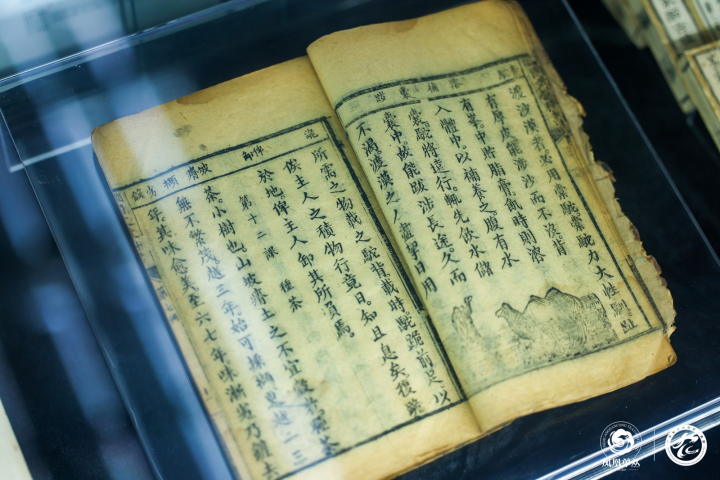 渡沙漠者必用橐駝橐駝力大性馴趾
有厚皮涉沙而不沒背
有峯中貯脂膏飢時則溶
入體中以補養之腹有水
囊駝將遠行輒先飲水儲
囊中故能跋涉長途久而
不渴渡漠之人日用
所需之物載之駝背載時駝跪前足以
俟主人之積物行竟日知且息矣復跪
於地俾主人卸其所負焉
第十二課 種茶
茶小樹也山坡瘠土之不宜穀者種茶
無不繁茂越三年始可採摘更越二三
年其味愈美至六七年味漸劣乃鋤去
鳳凰單叢